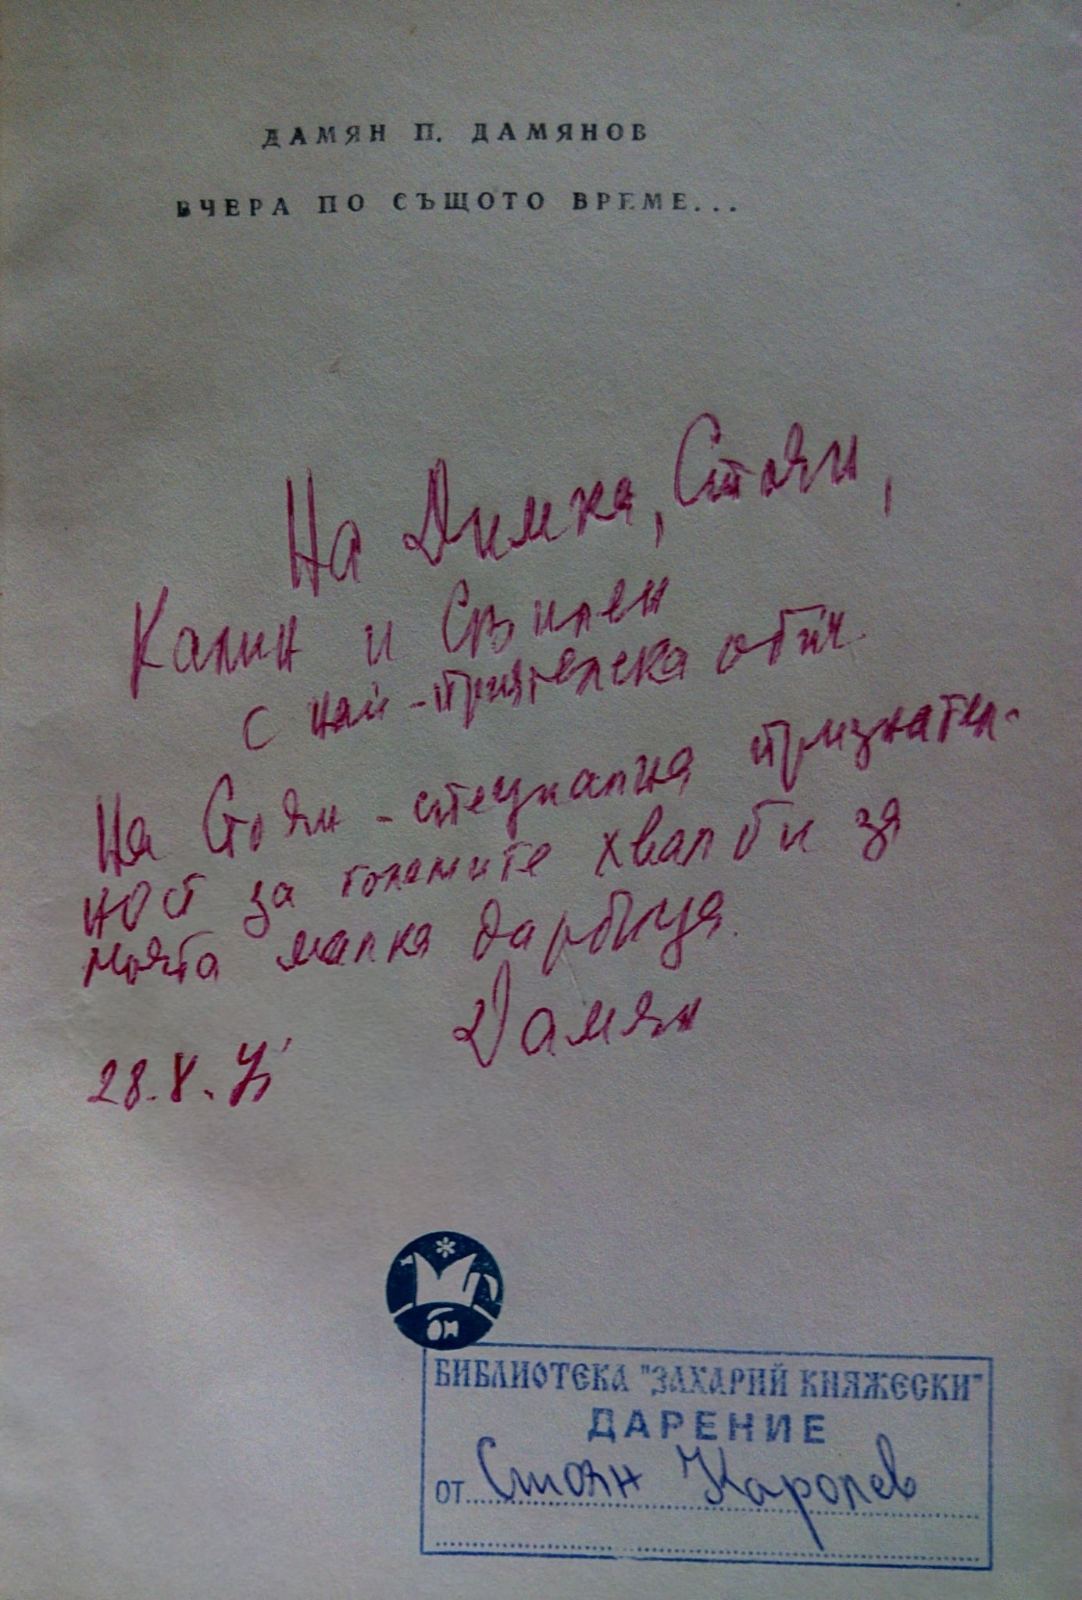 ДАМЯН П. ДАМЯНОВ
ВЧЕРА ПО СЪЩОТО ВРЕМЕ...
На Димка, Стоян,
Калин и Свилен
с най-приятелска обич.
На Стоян - специална признател-
ност за големите хвалби за
моята малка дарбица.
Дамян
28.X.
БИБЛИОТЕКА "ЗАХАРИЙ КНЯЖЕСКИ"
ДАРЕНИЕ
от Стоян Каролев